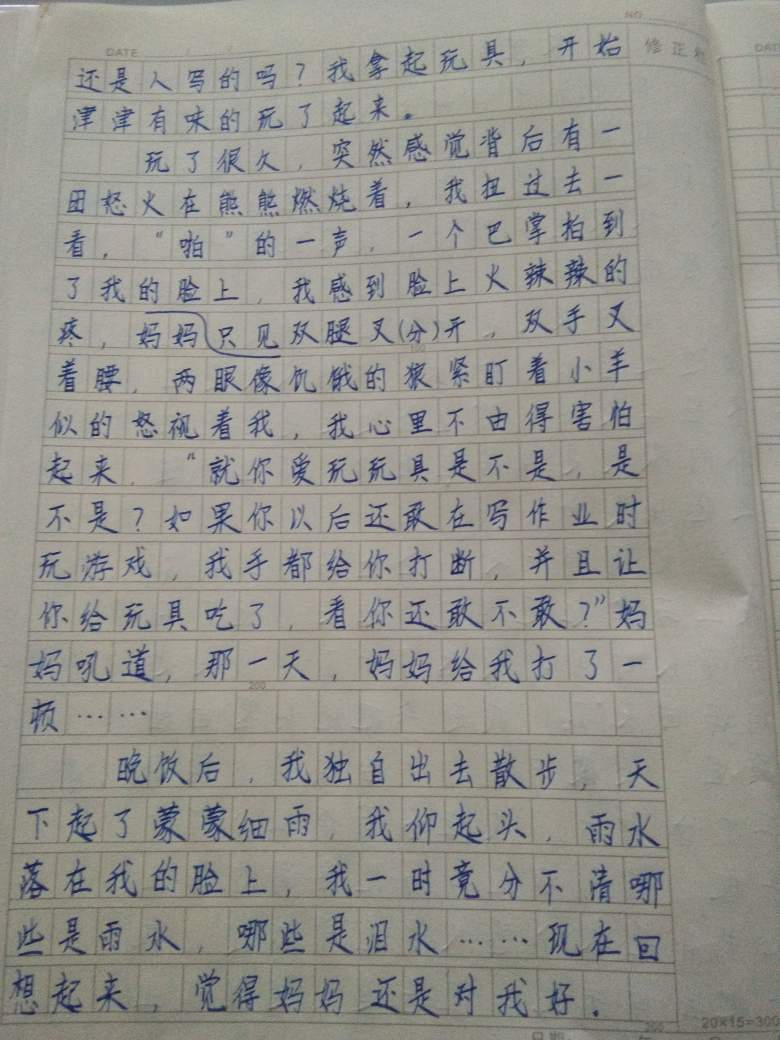 NO
DATE
修正
DAT
还是人写的吗？我拿起玩具，开始
津津有味的玩了起来。
玩了很久，突然感觉背后有一
团怒火在熊熊燃烧着，我扭过去一
看，“啪”的一声，一个巴掌拍到
了我的脸上，我感到脸上火辣辣的
疼，妈妈只见双腿叉(分)开，双手叉
着腰，两眼像饥饿的狼紧盯着小羊
似的怒视着我，我心里不由得害怕
起来，“就你爱玩玩具是不是，是
不是？如果你以后还敢在写作业时
玩游戏，我手都给你打断，并且让
你给玩具吃了，看你还敢不敢？”妈
妈吼道，那一天，妈妈给我打了一
200
顿……
晚饭后，我独自出去散步，天
下起了蒙蒙细雨，我仰起头，雨水
落在我的脸上，我一时竟分不清哪
些是雨水，哪些是泪水……现在回
想起来，觉得妈妈还是对我好。
300
20×15=300